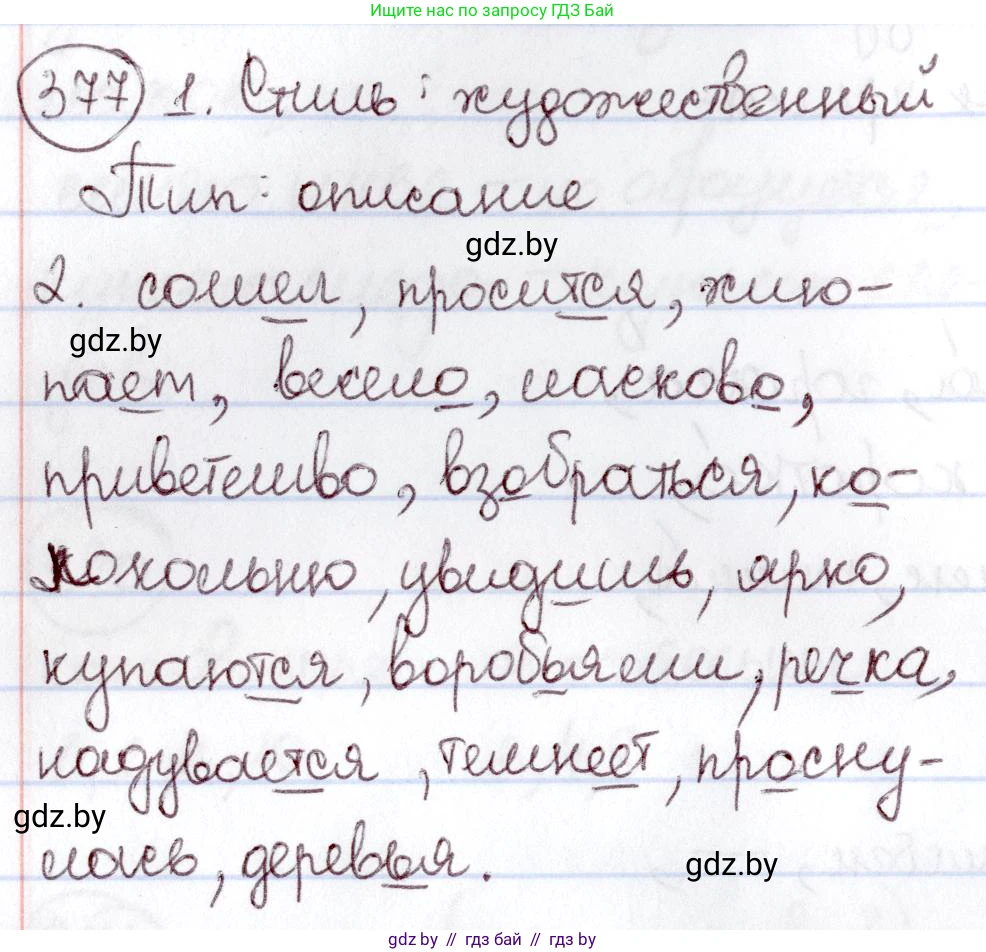 Ищите нас по запросу ГДЗ Бай
377 1. Стиль: художественный
Тип: описание
gdz.by
2. сошел, просится, хлю-
gdz.by
пает, весело, ласково,
приветливо, взобраться, ко-
локольню, увидишь, ярко,
купаются, воробьями, речка,
надувается, темнеет, просну-
gdz.by
лась, деревья.
gdz.by
gdz.by // гдз бай // гдз by